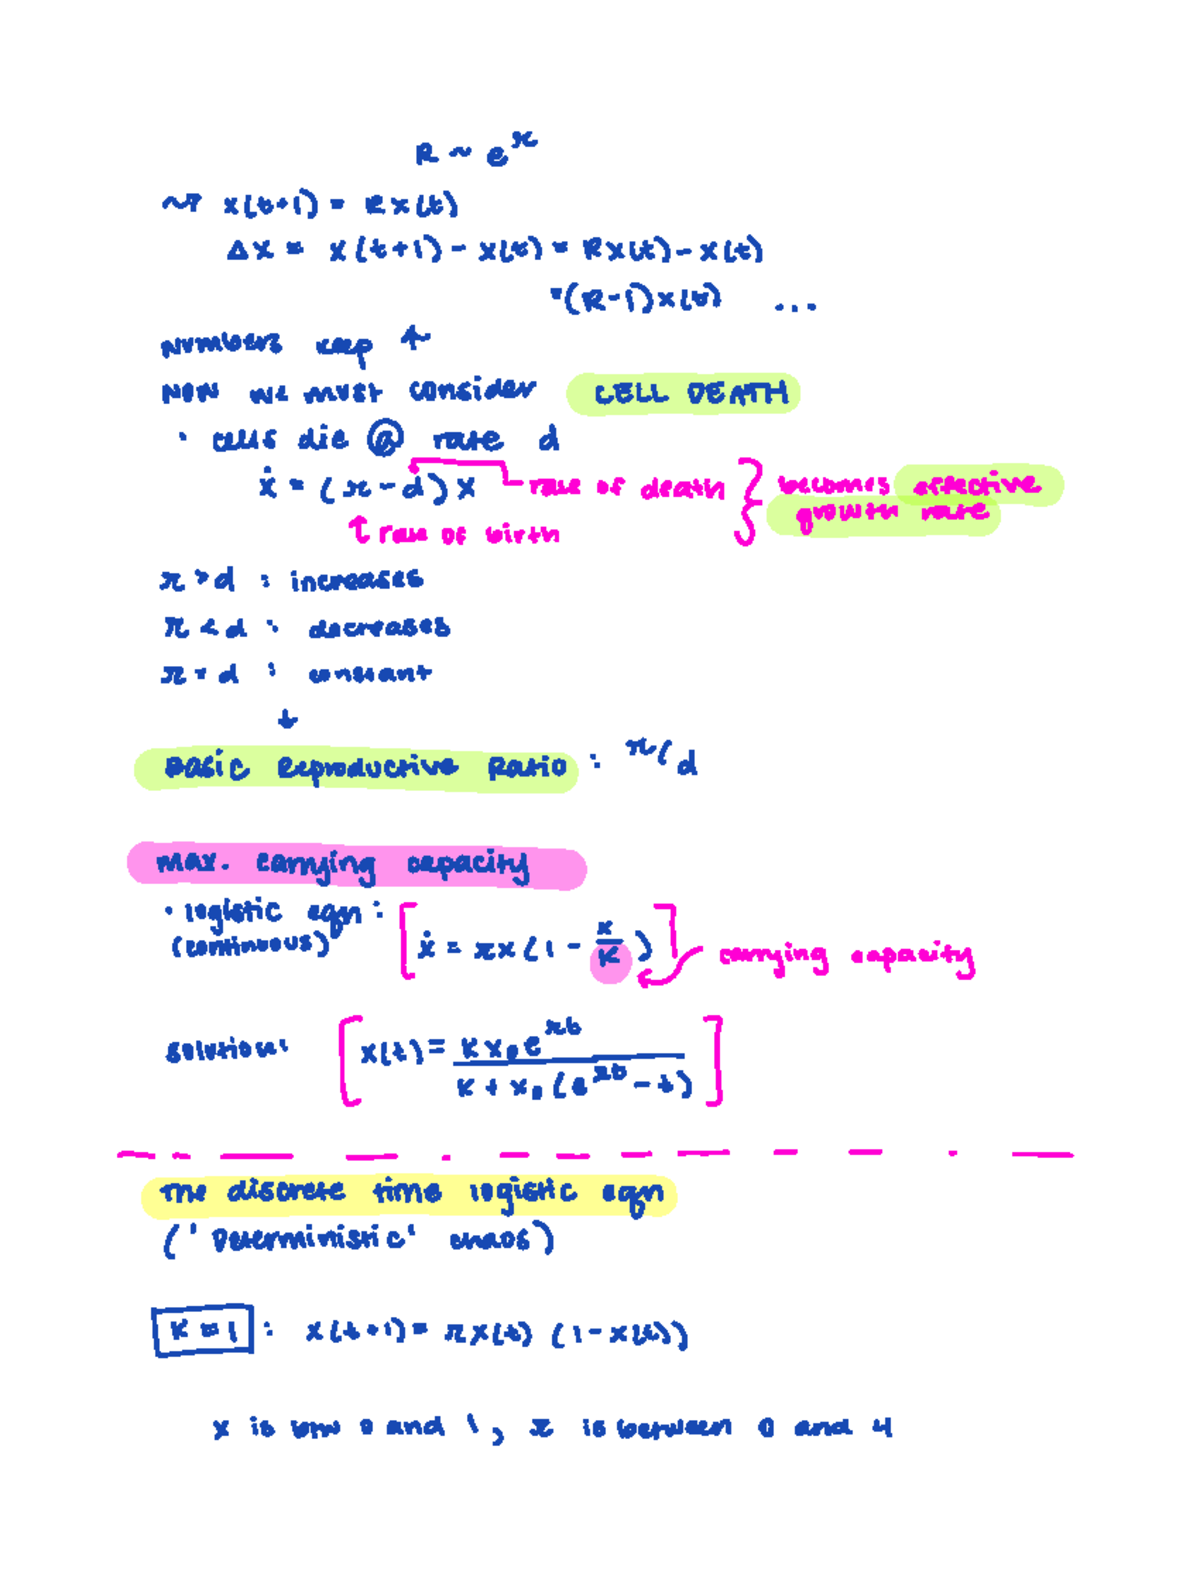 R ~ e^r
~> x(t+1) = Rx(t)
Δx = x(t+1) - x(t) = Rx(t) - x(t)
=(R-1)x(t) ...
Numbers keep ↑
Now we must consider CELL DEATH
· cells die @ rate d
ẋ = (r-d)x
rate of death
↑ rate of birth
} becomes effective
growth rate
r > d : increases
r < d : decreases
r = d : constant
↓
Basic Reproductive Ratio : r/d
Max. carrying capacity
· logistic eqn :
(continuous)
[ẋ = rx(1 - x/K)]
carrying capacity
solution: [x(t) = K x₀ e^rt / K + x₀ (e^rt - t)]
The discrete time logistic eqn
('Deterministic' chaos)
K = 1 : x(t+1) = rx(t) (1-x(t))
x is btw 0 and 1, r is between 0 and 4